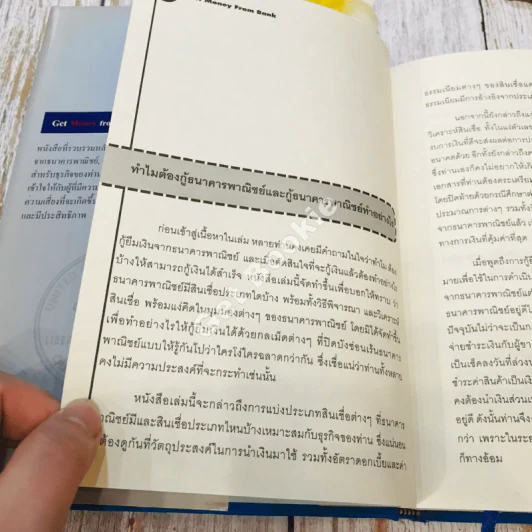 Get Money from
หนังสือที่รวบรวมหลั
จากธนาคารพาณิชย์,
สำหรับธุรกิจของท่าน
เข้าใจให้กับผู้ที่มีความ
ความเสี่ยงที่จะเกิดขึ้น
และมีประสิทธิภาพ
Money From Bank
ทำไมต้องกู้ธนาคารพาณิชย์และกู้ธนาคารพาณิชย์ทำอย่างไร
ก่อนเข้าสู่เนื้อหาในเล่ม หลายท่านคงเคยมีคำถามในใจว่าทำไม ต้อง
กู้ยืมเงินจากธนาคารพาณิชย์ และเมื่อตัดสินใจที่จะกู้เงินแล้วต้องทำอย่างไร
บ้างให้สามารถกู้เงินได้สำเร็จ หนังสือเล่มนี้จัดทำขึ้นเพื่อบอกให้ทราบ ว่า
ธนาคารพาณิชย์มีสินเชื่อประเภทใดบ้าง พร้อมทั้งวิธีพิจารณา และวิเคราะห์
สินเชื่อ พร้อมแง่คิดในมุมมองต่างๆ ของธนาคารพาณิชย์ โดยมิได้จัดทำขึ้น
เพื่อทำอย่างไรให้กู้ยืมเงินได้ด้วยกลเม็ดต่างๆ ที่ปิดบังซ่อนเร้นธนาคาร
พาณิชย์แบบให้รู้กันไปว่าใครโง่ใครฉลาดกว่ากัน ซึ่งเชื่อแน่ว่าท่านทั้งหลาย
คงไม่มีความประสงค์ที่จะกระทำเช่นนั้น
หนังสือเล่มนี้จะกล่าวถึงการแบ่งประเภทสินเชื่อต่างๆ ที่ธนาคาร
พาณิชย์มีและสินเชื่อประเภทไหนบ้างเหมาะสมกับธุรกิจของท่าน ซึ่งแน่นอน
ต้องดูกันที่วัตถุประสงค์ในการนำเงินมาใช้ รวมทั้งอัตราดอกเบี้ยและค่า
ธรรมเนียมต่างๆ ของสินเชื่อแต่
ธรรมเนียมมีการอ้างอิงจากประเภ
นอกจากนี้ยังกล่าวถึงแง่
วิเคราะห์สินเชื่อ ทั้งในแง่ตัวเลข
รับการเงินที่ดีจะส่งผลต่อการปร
อนาคตด้วย อีกทั้งยังกล่าวถึงคว
ซึ่งท่านเองก็คงไม่อยากให้เกิดขึ้น
เอกสารที่ท่านต้องตระเตรียม
โดยปิดท้ายด้วยกรณีศึกษา
ประมาณการต่างๆ รวมทั้ง
จากธนาคารพาณิชย์แล้ว เ
ทางการเงินที่คุ้มค่าที่สุด
เมื่อพูดถึงการกู้ยื
มายเพื่อใช้ในการดำเนิน
จากธนาคารพาณิชย์แต่
ธนาคารพาณิชย์อยู่ดีใ
ปัจจุบันไม่ว่าจะเป็น
จ่ายชำระเงินกับผู้ขา
เป็นเช็คลงวันที่ล่วง
ชำระค่าสินค้าเป็นเงิ
คงต้องนำเงินส่วนเ
อยู่ดี ดังนั้นท่านจึง
กว่า เพราะในระย
ก็ทางอ้อม